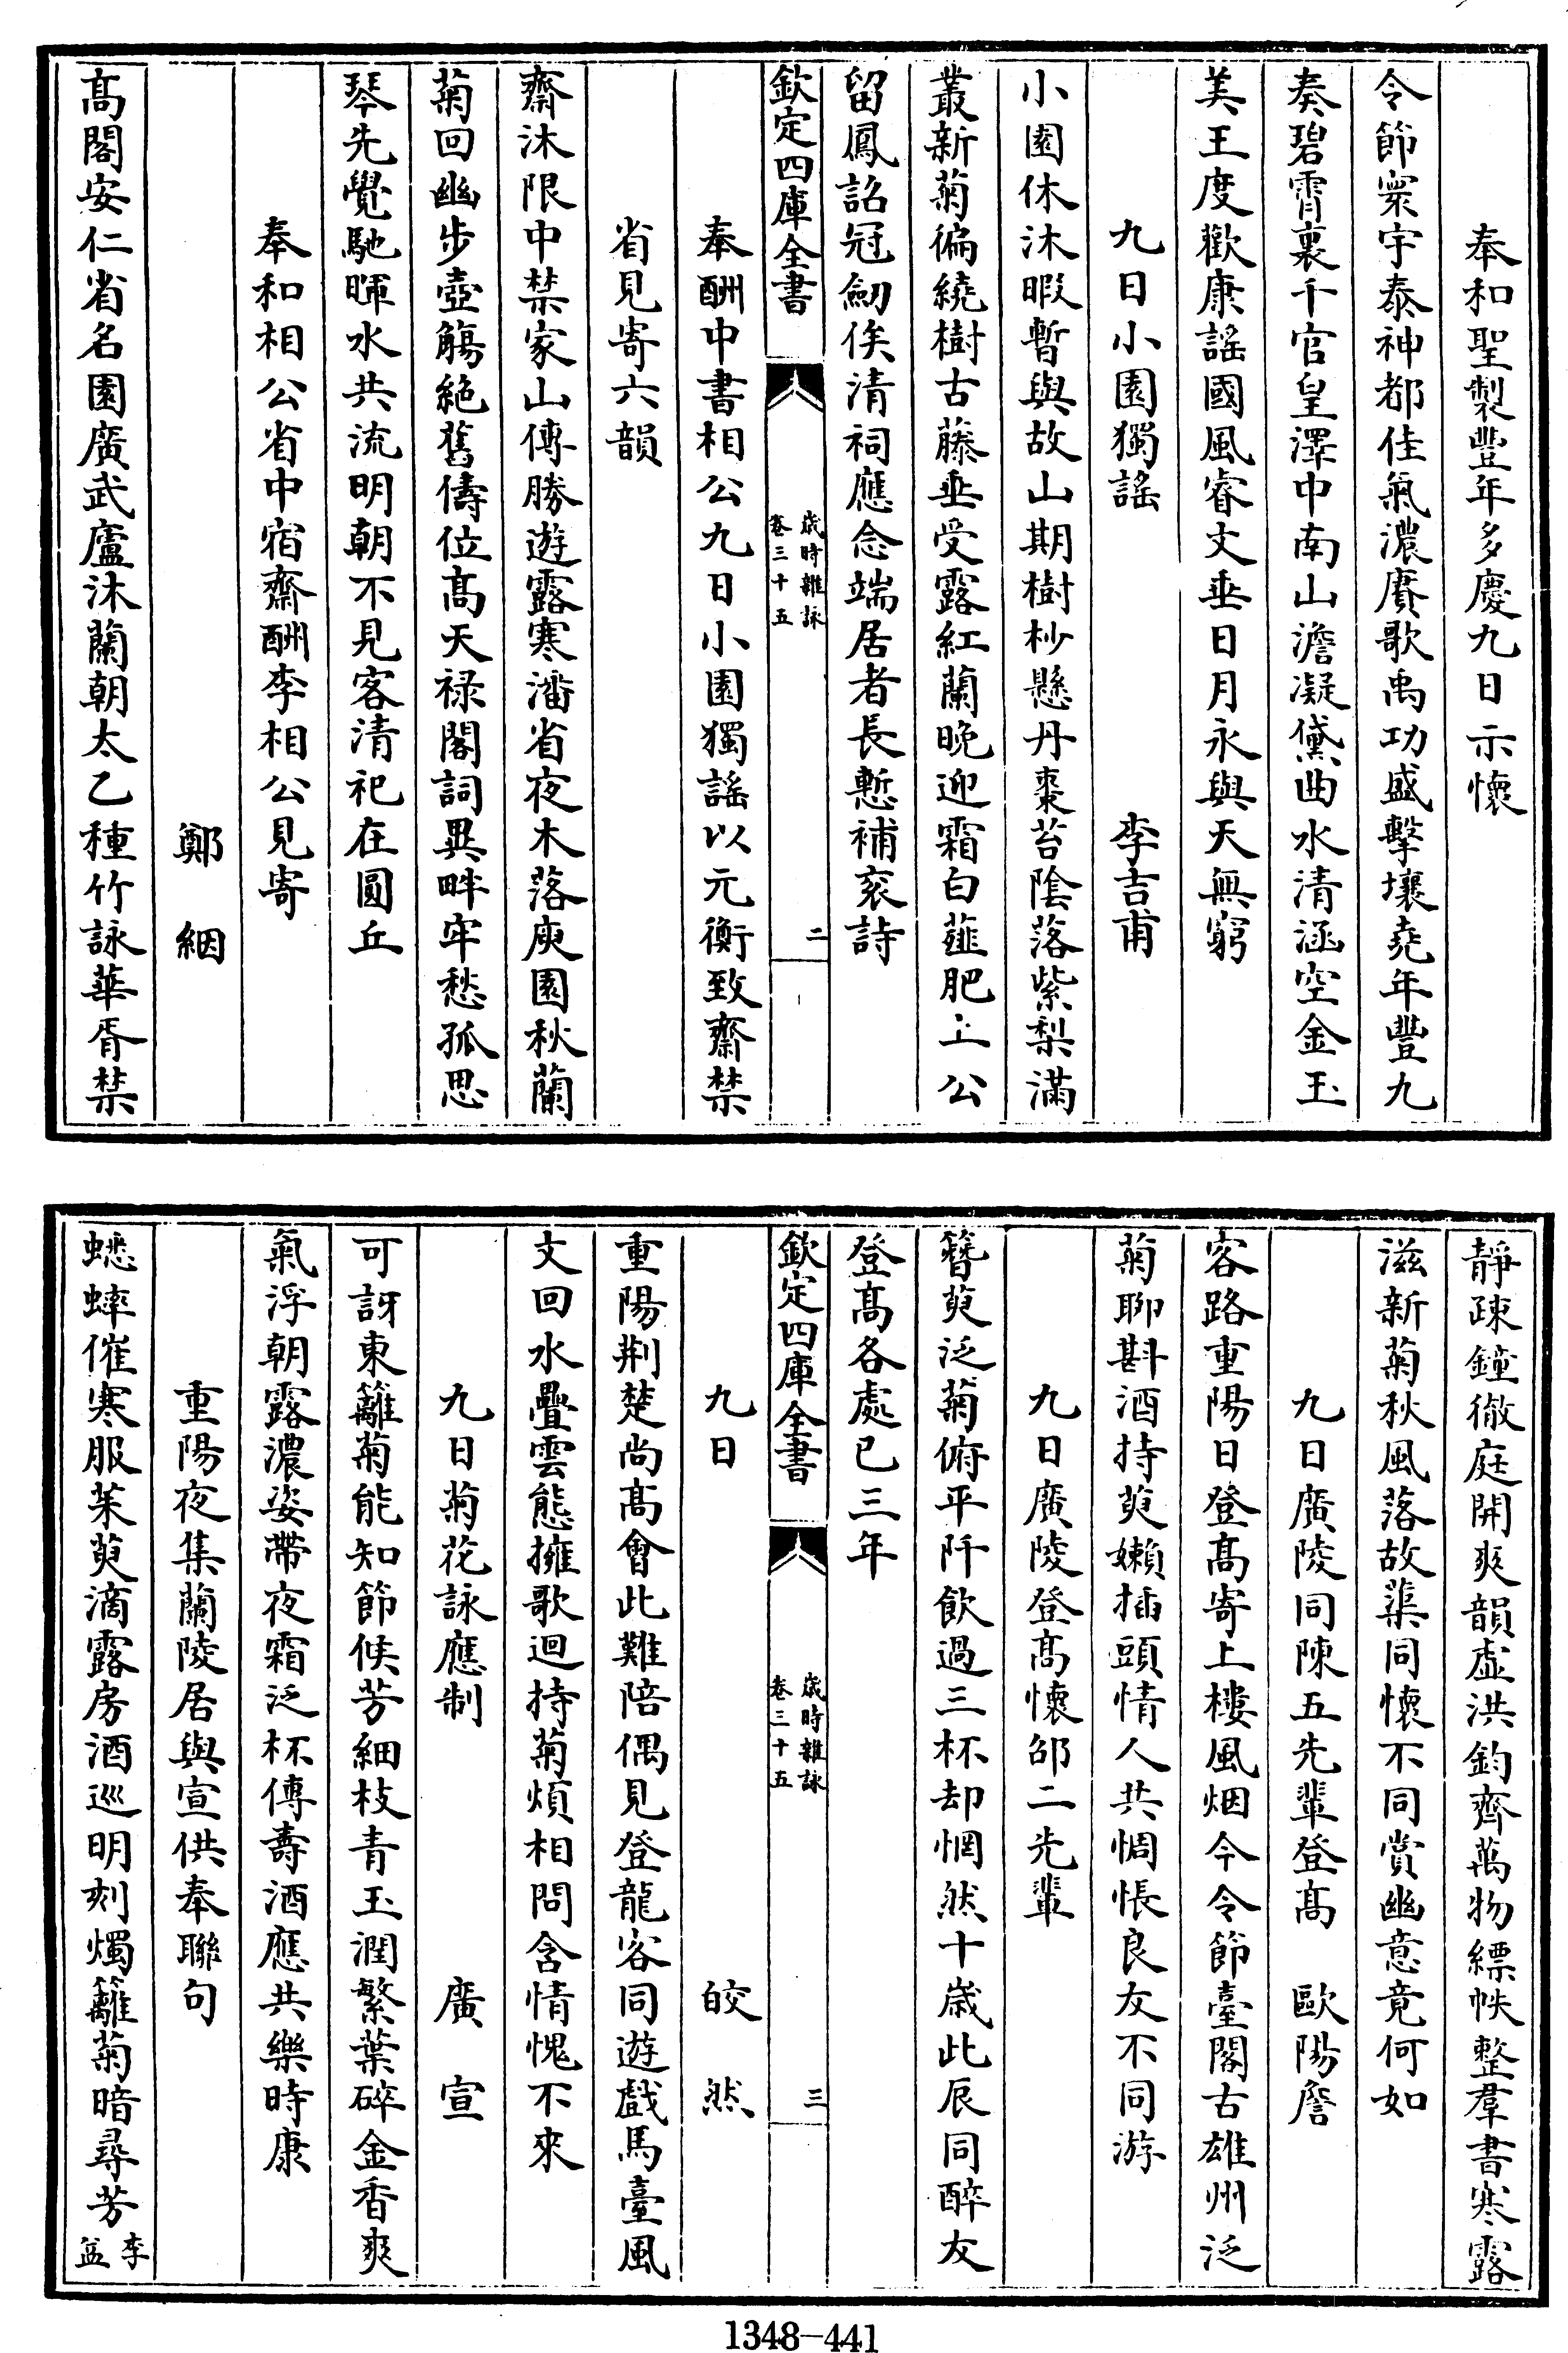 奉和聖製豐年多慶九日示懷
令節寰宇泰神都佳氣濃賡歌禹功盛擊壤堯年豐九
奏碧霄裏千官皇澤中南山澹凝黛曲水清涵空金玉
美王度歡康謡國風睿文垂日月永與天無窮
九日小園獨謡　李吉甫
小園休沐暇暫與故山期樹杪懸丹棗苔陰落紫梨滿
叢新菊徧繞樹古藤垂受露紅蘭晚迎霜白薤肥上公
留鳳詔冠劒俟清祠應念端居者長慙補衮詩
欽定四庫全書　歲時雜詠　卷三十五　二
奉酬中書相公九日小園獨謡以元衡致齋禁
省見寄六韻
齋沐限中禁家山傳勝遊露寒潘省夜木落庾園秋蘭
菊回幽步壺觴絶舊儔位髙天禄閣詞異畔牢愁孤思
琴先覺馳暉水共流明朝不見客清祀在圓丘
奉和相公省中宿齋酬李相公見寄
鄭絪
髙閣安仁省名園廣武廬沐蘭朝太乙種竹詠華胥禁
靜疎鐘徹庭開爽韻虚洪鈞齊萬物縹帙整羣書寒露
滋新菊秋風落故蕖同懷不同賞幽意竟何如
九日廣陵同陳五先輩登髙　歐陽詹
客路重陽日登髙寄上樓風烟今令節臺閣古雄州泛
菊聊斟酒持萸嬾插頭情人共惆悵良友不同游
九日廣陵登髙懷邵二先輩
簪萸泛菊俯平阡飲過三杯却惘然十歲此辰同醉友
登髙各處已三年
欽定四庫全書　歲時雜詠　卷三十五　三
九日　皎然
重陽荆楚尚髙會此難陪偶見登龍客同遊戲馬臺風
文回水疊雲態擁歌迴持菊煩相問含情愧不來
九日菊花詠應制　廣宣
可訝東籬菊能知節候芳細枝青玉潤繁葉碎金香爽
氣浮朝露濃姿帶夜霜泛杯傳壽酒應共樂時康
重陽夜集蘭陵居與宣供奉聯句
蟋蟀催寒服茱萸滴露房酒巡明刻燭籬菊暗尋芳李益
1348-441